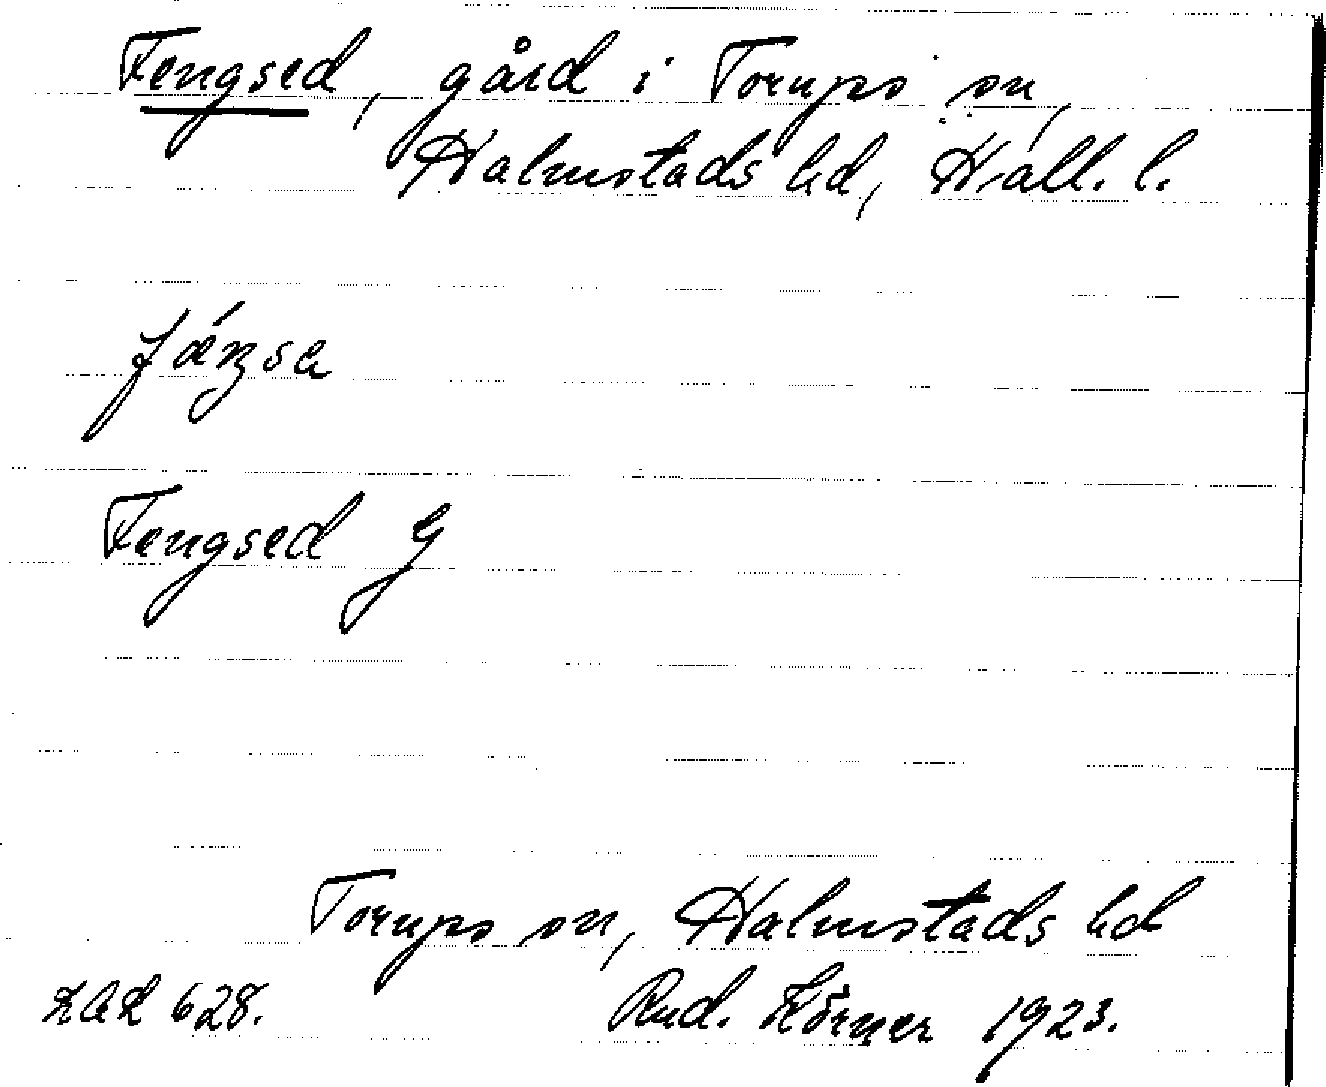 Fengsed, gård i Torups sn,
Halmstads hd, Hall. l.
Fengsed G
Torups sn, Halmstads hd
628. Rud. Körner 1923.